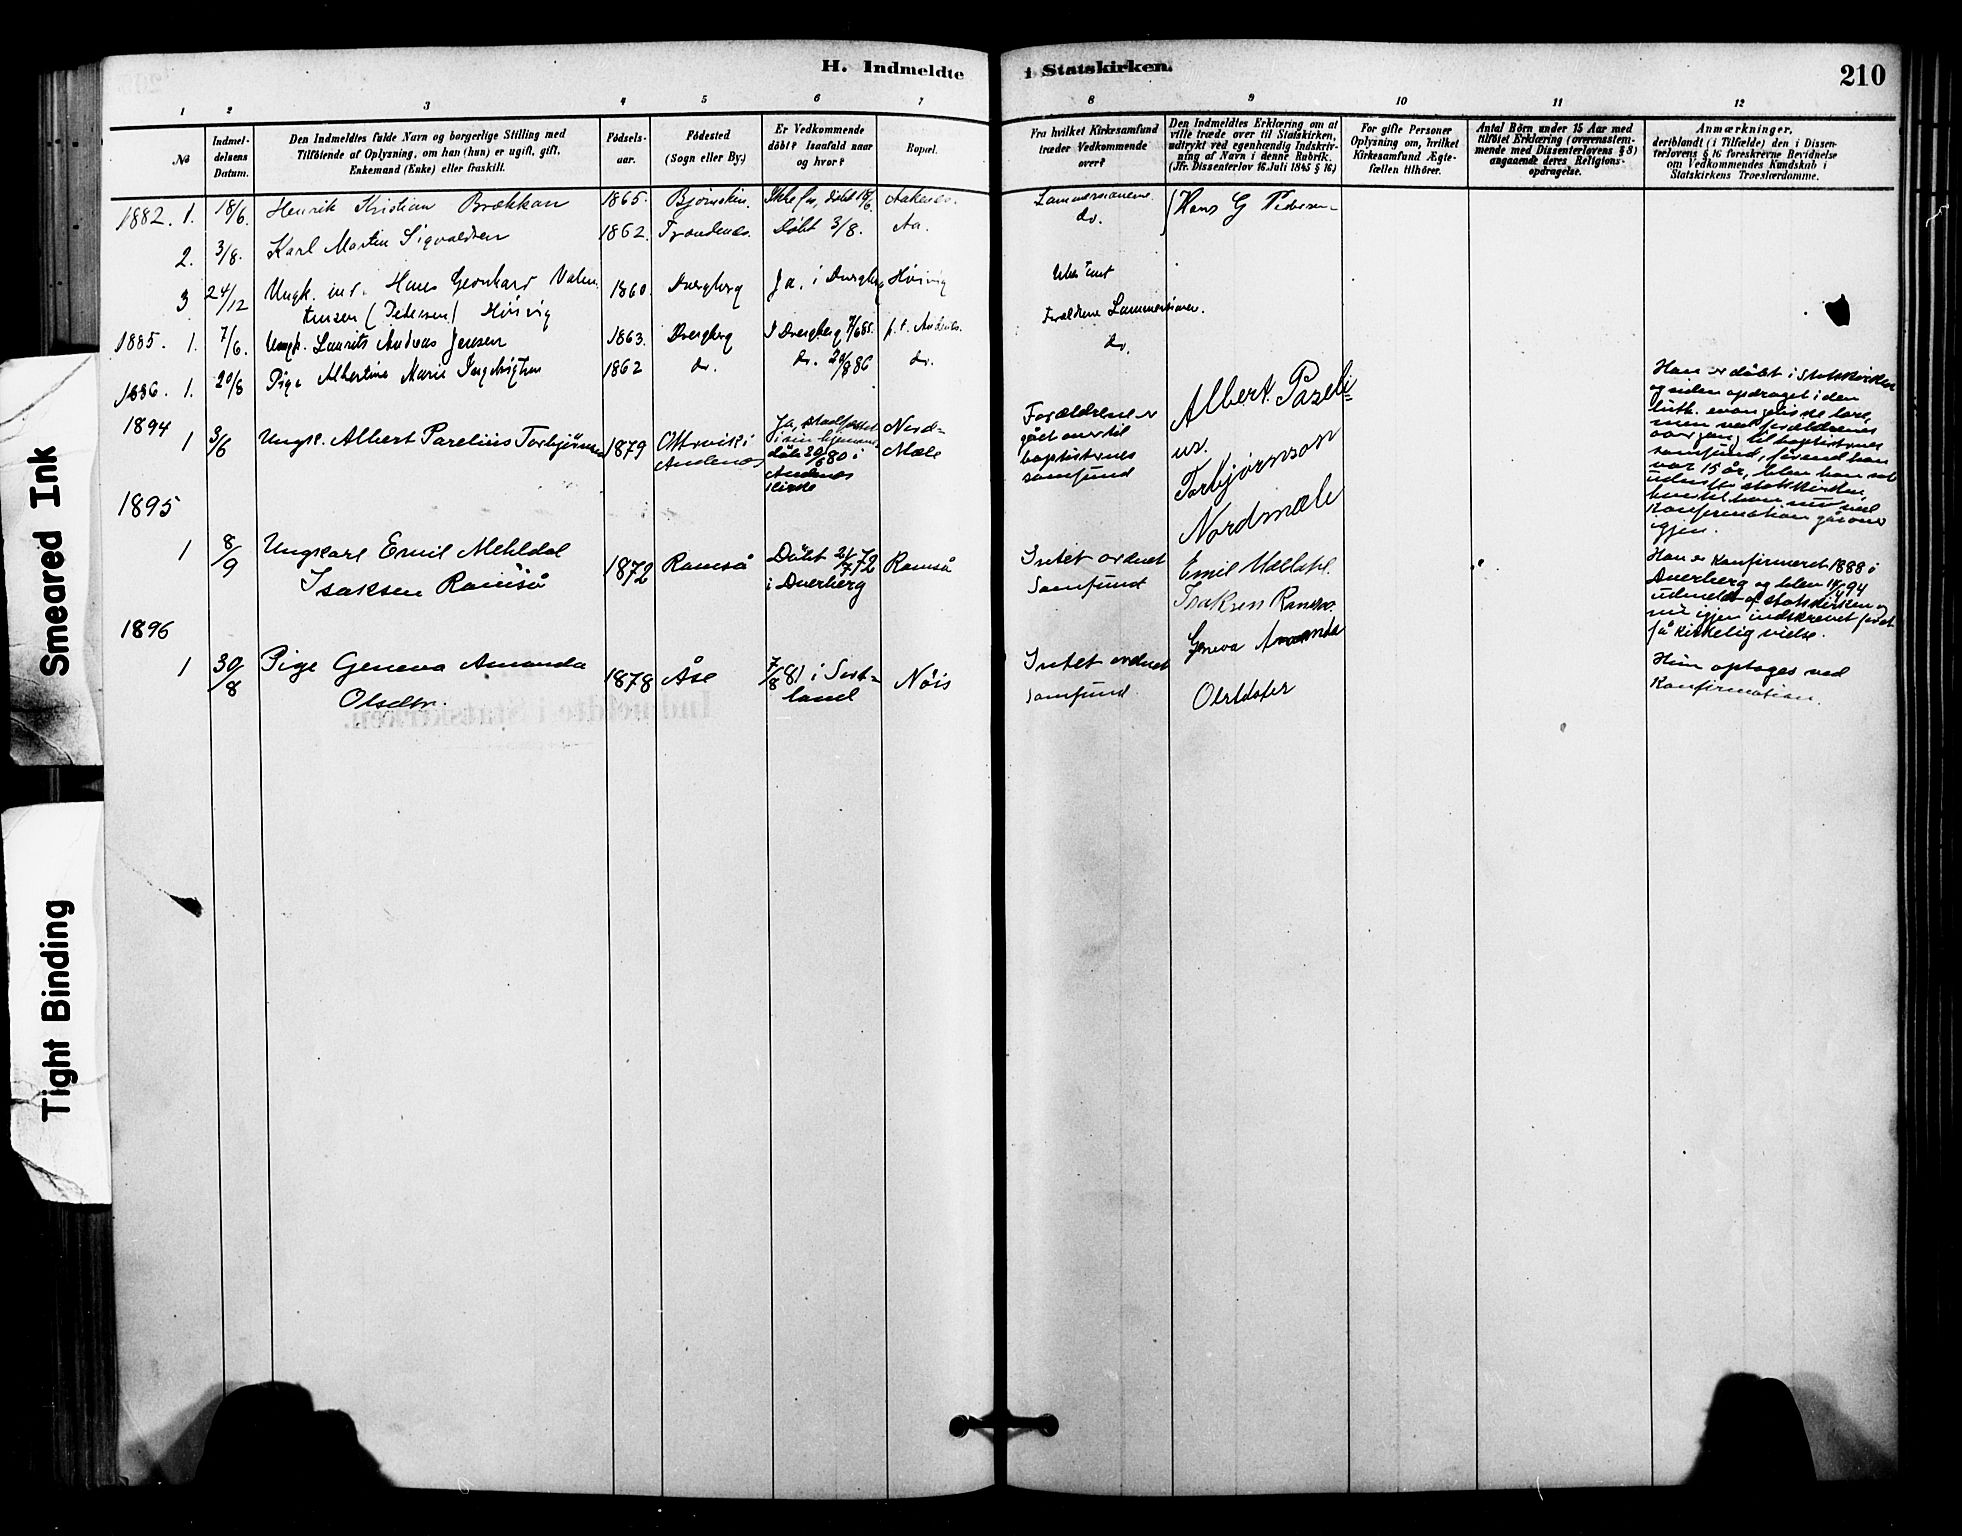 H. Indmeldte i Statskirken.
210
1 2 3 4 5 6 7 8 9 10 11 12
No
Indmel-
delsens
Datum.
Den Indmeldtes fulde Navn og borgerlige Stilling med
Tilföiende af Oplysning, om han (hun) er ugift, gift,
Enkemand (Enke) eller fraskilt.
Födsels-
aar.
Födested
(Sogn eller By.)
Er Vedkommende
döbt? Isaafald naar
og hvor?
Bopæl.
Fra hvilket Kirkesamfund
træder Vedkommende
over?
Den Indmeldtes Erklæring om at
ville træde over til Statskirken,
udtrykt ved egenhændig Indskriv-
ning af Navn i denne Rubrik.
(Jfr. Dissenterlov 16. Juli 1845 § 16)
For gifte Personer
Oplysning om, hvilket
Kirkesamfund Ægte-
fællen tilhörer.
Antal Börn under 15 Aar med
tilföiet Erklæring (overensstem-
mende med Dissenterlovens § 8)
angaaende deres Religions-
opdragelse.
Anmærkninger,
deriblandt (i Tilfælde) den i Dissen-
terlovens § 16 foreskrevne Bevidnelse
om Vedkommendes Kundskab i
Statskirkens Troeslærdomme.
1882. 1. 18/6. Henrik Kristian Brækkan 1865. Bjørnskin. Döbt 18/6. Lammersianerne (Hans G Pedersen
2. 3/8. Karl Martin Sigvaldsen 1862. Trondenes. Döbt 3/8. Aa. do.
3 24/12 Ungk. Hans Leonhard Valen-
tinsen (Pedersen) Höivig 1860. Dverberg Ja, i Dverberg Höivig
Forældrene Lammersianer.
1885. 1. 7/6. Ungk. Laurits Andreas Jensen 1863. Dverberg I Dverberg 7/6 85. p.t. Andenes. do.
1886. 1. 20/8 Pige Albertine Marie Ingebrigtsen 1862 do. do. 20/8 86 do.
1894
1 3/6 Ungk. Albert Parelius Torbjörnsen 1879
Andenes
Ja, stadfæstet
i sin hjemme-
dåb 20/6 80 i
Andenes
Kirke
Nord-
Mæle
Forældrene er
gået over til
baptisternes
samfund
Albert Pareli-
us.
Torbjørnson
Nordmæle
Han er döbt i Statskirken
og siden opdraget i den
luth. evangeliske lære,
men ved forældrenes
overgang til baptisternes
samfund, förend han
var 15 år, blev han sat
udenfor statskirken,
hvortil han nu ved
Konfirmation går over
igjen.
1895
1 8/9 Ungkarl Emil Mehldal
Isaksen Ramså 1872 Ramså Döbt 21/7 72
i Dverberg Ramså
Intet ordnet
Samfund
Emil
Isaksen Ramsø.
Han er Konfirmeret 1888 i
Dverberg og blev 15/4 94
udmeldt af statskirken og
nu igjen indskrevet for at
få kirkelig vielse.
1896
1 30/8 Pige Geneva Amanda
Olsdtr. 1878 Åse 7/8 81 i Sort-
land Nöis
Intet ordnet
samfund.
Geneva Amanda
Olsdater
Hun optages ved
Konfirmation.
Smeared Ink
Tight Binding